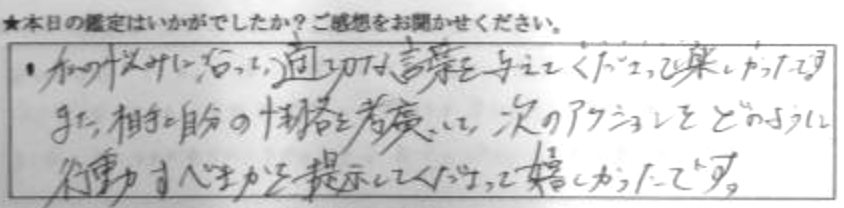 ★本日の鑑定はいかがでしたか？ご感想をお聞かせください。
・私の悩みに沿って、適切な言葉を与えてくださって楽しかったです
また、相手と自分の性格を考慮して、次のアクションをどのように
行動すべきかを提示してくださって嬉しかったです。